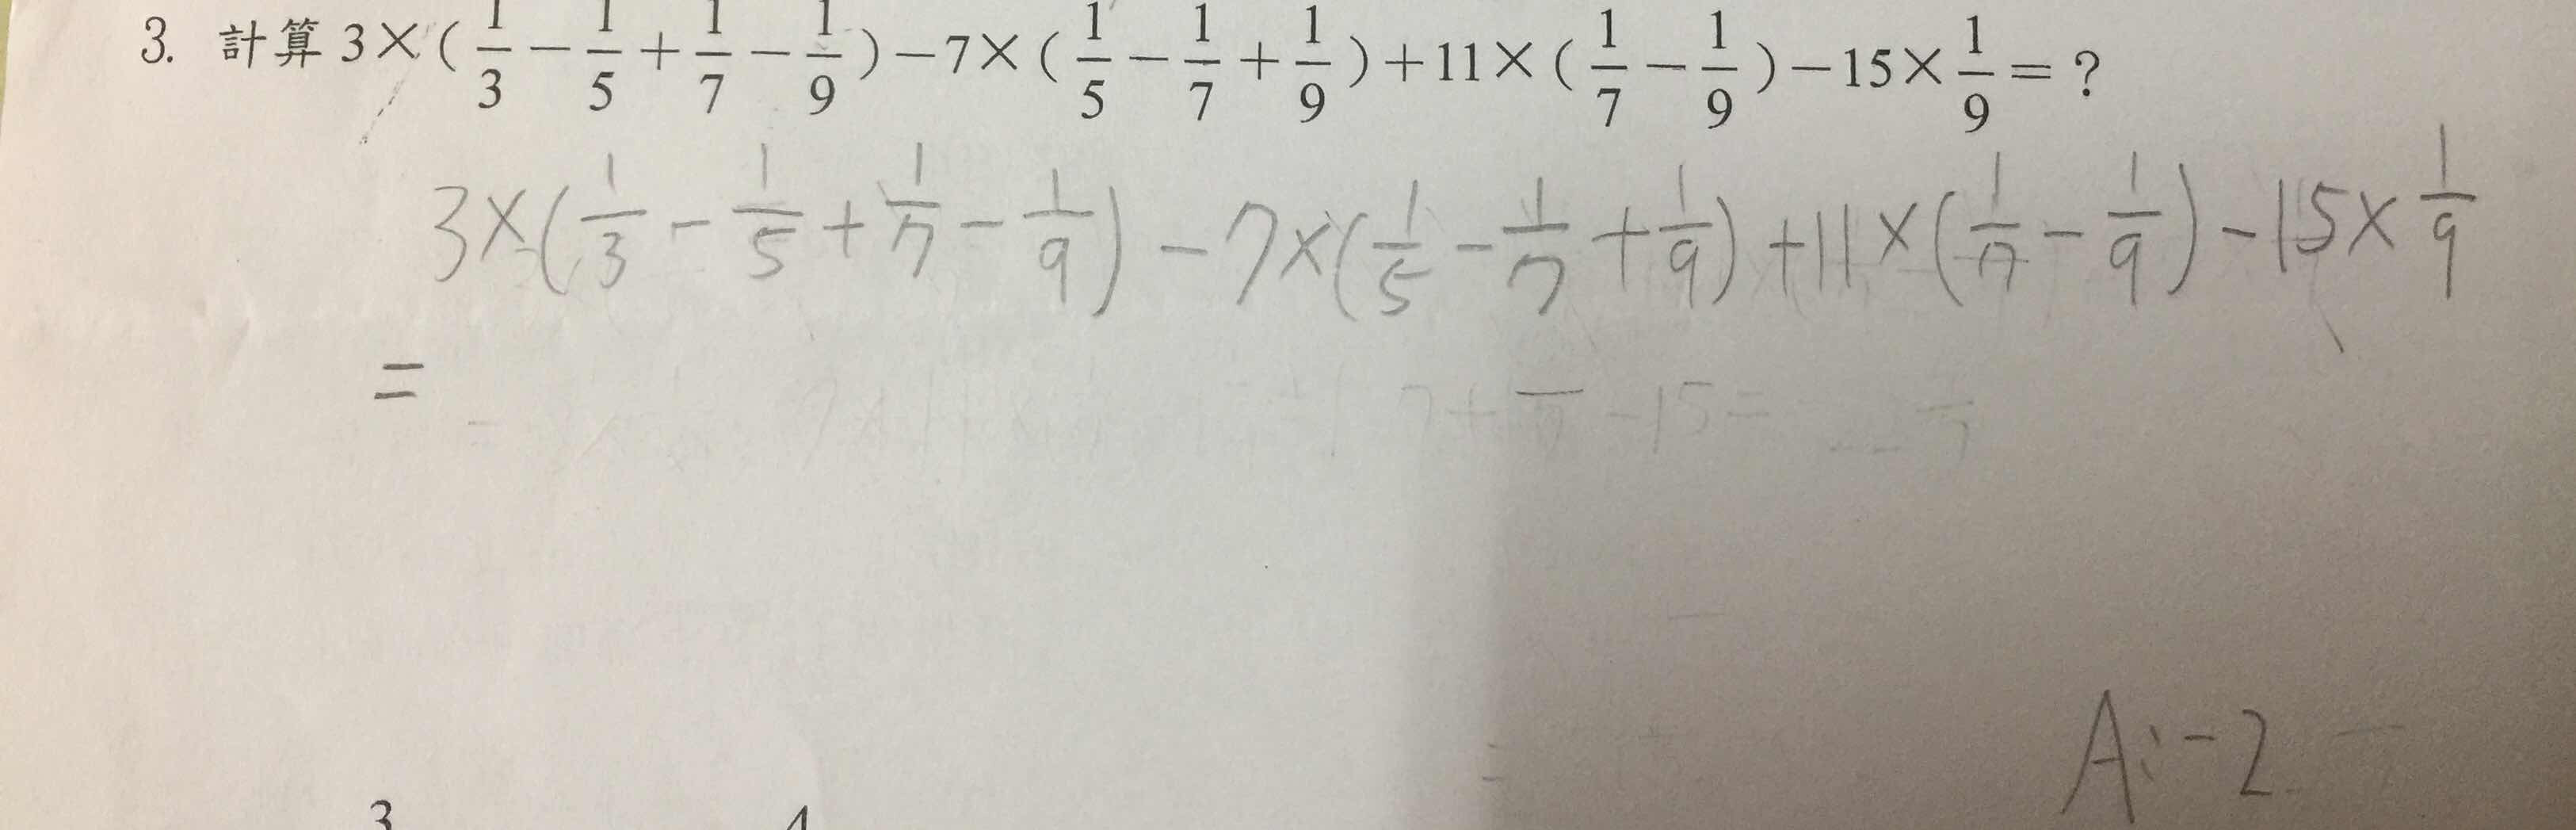 3. 計算 3×(1/3−1/5+1/7−1/9)−7×(1/5−1/7+1/9)+11×(1/7−1/9)−15×1/9=?
3×(1/3−1/5+1/7−1/9)−7×(1/5−1/7+1/9)+11×(1/7−1/9)−15×1/9
=
A:−2
3 4